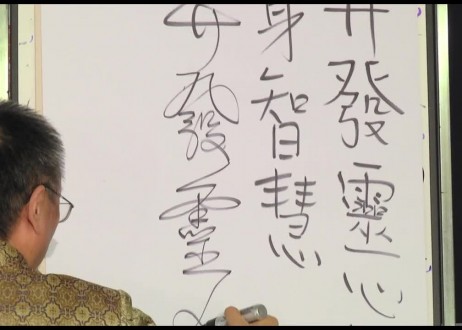 發靈心
身智慧
發靈